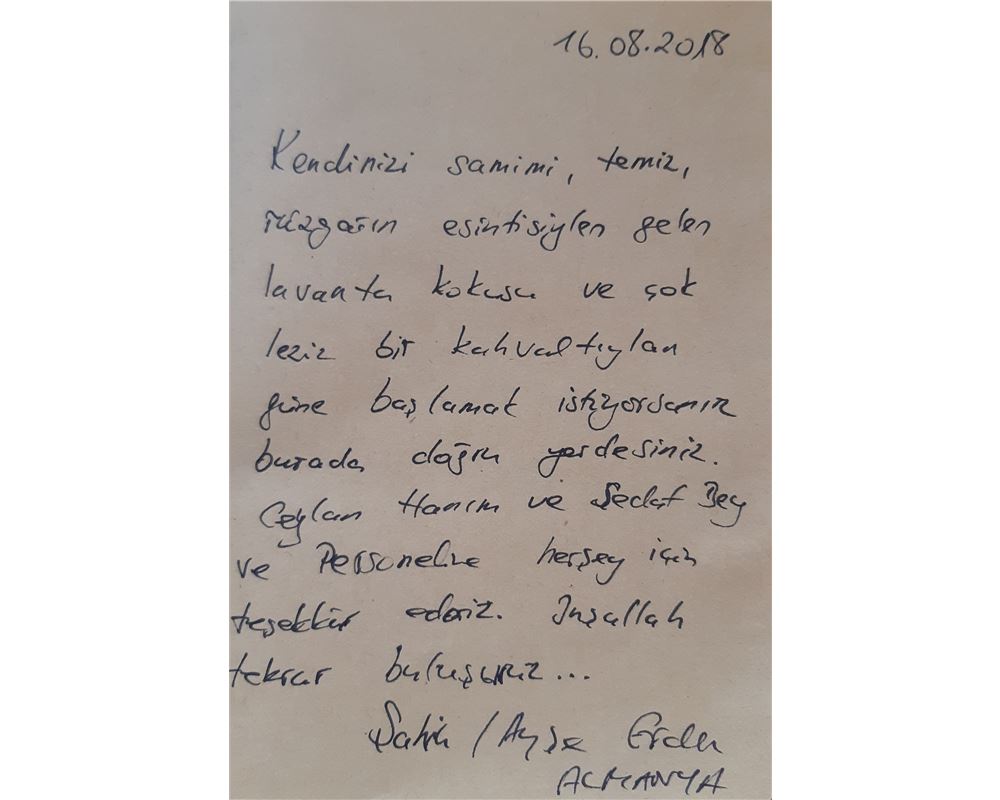 16.08.2018
Kendinizi samimi, temiz,
rüzgarın esintisiylen gelen
lavanta kokusu ve çok
leziz bir kahvaltıylan
güne başlamak istiyorsanız
burada doğru yerdesiniz.
Ceylan Hanım ve Sedat Bey
ve Personeline herşey için
teşekkür ederiz. Inşallah
tekrar buluşuruz...
/ Ayşe
ALMANYA